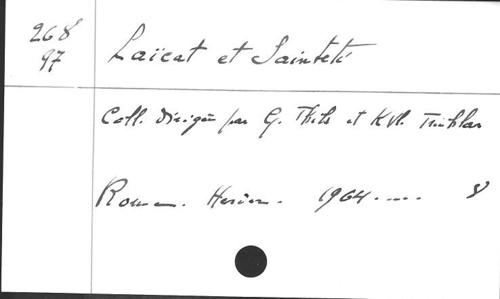 268
97
Laïcat et Sainteté
Coll. dirigée par G. Thils et K.Vl. Truhlar
Rome. Herder. 1964..... 8